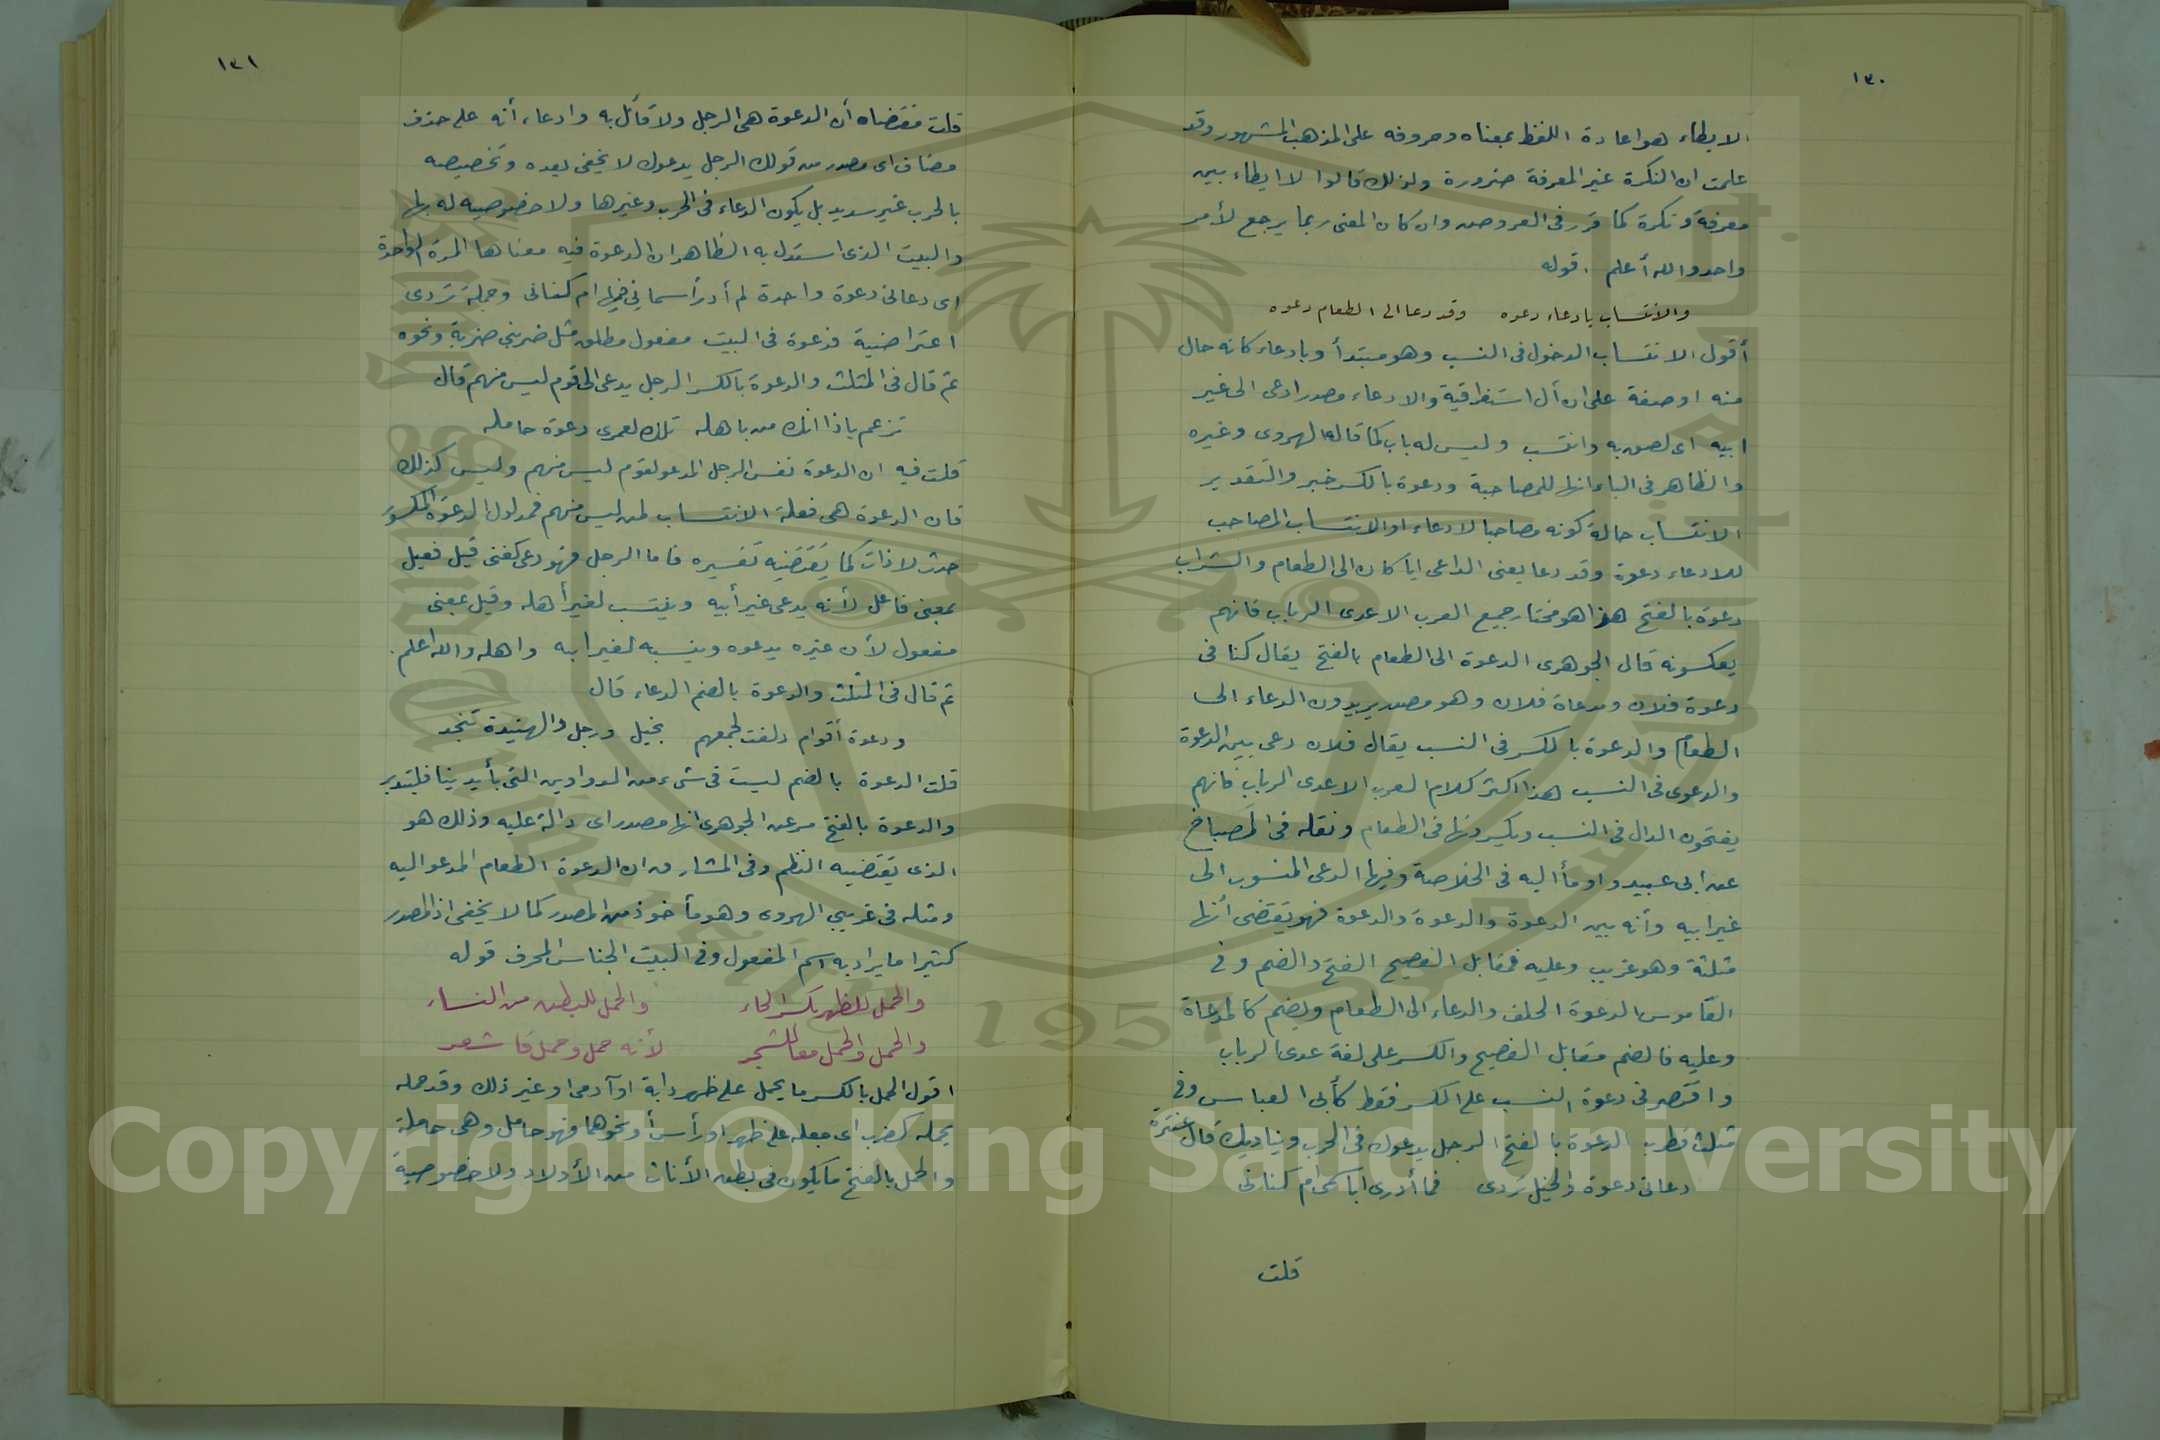 ١٣٠
الايطاء هو اعادة اللفظ بمعناه وحروفه على المذهب المشهور وقد
علمت ان النكرة غير المعرفة ضرورة ولذلك قالوا لا ايطاء بين
معرفة ونكرة كما قرر فى العروض وان كان المعنى ربما يرجع لأمر
واحد والله أعلم . قوله
والانتساب بادعاء دعوه وقد دعا الى الطعام دعوه
أقول الانتساب الدخول فى النسب وهو مبتدأ وبادعاء كانه حال
منه او صفة على ان أل استغراقية والادعاء مصدر ادعى الى غير
ابيه اى لصق به وانتسب وليس له باب كما قاله الهروى وغيره
والظاهر فى الباء انها للمصاحبة ودعوة بالكسر خبر والتقدير
الانتساب حالة كونه مصاحبا لادعاء او الانتساب المصاحب
للادعاء دعوة وقد دعا يعنى الداعى ايا كان الى الطعام والشراب
دعوة بالفتح هذا هو مختار جميع العرب الا عدى الرباب فانهم
يعكسونه قال الجوهرى الدعوة الى الطعام بالفتح يقال كنا فى
دعوة فلان ومدعاة فلان وهو مصدر يريدون الدعاء الى
الطعام والدعوة بالكسر فى النسب يقال فلان دعى بين الدعوة
والدعوى فى النسب هذا اكثر كلام العرب الا عدى الرباب فانهم
يفتحون الدال فى النسب ويكسرونها فى الطعام ونقله فى المصباح
عن ابى عبيد واومأ اليه فى الخلاصة وفيها الدعى المنسوب الى
غير ابيه وأنه بين الدعوة والدعوة والدعوة فهو يقتضى أنها
مثلثة وهو غريب وعليه فمقابل الفصيح الفتح والضم وفى
القاموس الدعوة الحلف والدعاء الى الطعام ويضم كالمدعاة
وعليه فالضم مقابل الفصيح والكسر على لغة عدى الرباب
واقتصر فى دعوة النسب على الكسر فقط كأبى العباس وفى
مثلث قطرب الدعوة بالفتح الرجل يدعوك فى الحرب ويناديك قال عنترة
دعانى دعوة والخيل تردى فما أدرى اباسمى ام كنانى
قلت
١٣١
قلت مقتضاه أن الدعوة هى الرجل ولا قائل به وادعاء أنه على حذف
مضاف اى مصدر من قولك الرجل يدعوك لا يخفى بعده وتخصيصه
بالحرب غير سديد بل يكون الدعاء فى الحرب وغيرها ولا خصوصية له بها
والبيت الذى استدل به الظاهر ان الدعوة فيه معناها المرة الواحدة
اى دعانى دعوة واحدة لم أدر أسمانى فيها ام كنانى وجملة تردى
اعتراضية فدعوة فى البيت مفعول مطلق مثل ضربنى ضربة ونحوه
ثم قال فى المثلث والدعوة بالكسر الرجل يدعى الى قوم ليس منهم قال
تزعم ياذا انك من باهله تلك لعمرى دعوة حامله
قلت فيه ان الدعوة نفس الرجل المدعو لقوم ليس منهم وليس كذلك
فان الدعوة هى فعلة الانتساب لمن ليس منهم فمدلول الدعوة المكسور
حدث لا ذات كما يقتضيه تفسيره فاما الرجل فهو دعى كغنى قيل فعيل
بمعنى فاعل لأنه يدعى غير أبيه وينتسب لغير أهله وقيل بمعنى
مفعول لأن غيره يدعوه وينسبه لغير ابيه واهله والله اعلم .
ثم قال فى المثلث والدعوة بالضم الدعاء قال
ودعوة أقوام دلفت لجمعهم بخيل ورجل والهنيدة تنجد
قلت الدعوة بالضم ليست فى شىء من الدواوين التى بأيدينا فليتدبر
والدعوة بالفتح مر عن الجوهرى انها مصدر اى دالة عليه وذلك هو
الذى يقتضيه النظم وفى المشارق ان الدعوة الطعام المدعو اليه
ومثله فى غريبى الهروى وهو مأخوذ من المصدر كما لا يخفى اذ المصدر
كثيرا ما يراد به اسم المفعول وفى البيت الجناس المحرف قوله
والحمل للظهر بكسر الحاء والحمل للبطن من النساء
والحمل والحمل معا للشجر لأنه حمل وحمل فاشعر
اقول الحمل بالكسر ما يحمل على ظهر دابة او آدمى او غير ذلك وقد حمله
يحمله كضرب اى جعله على ظهر او رأس أو نحوهما فهو حامل وهى حاملة
والحمل بالفتح ما يكون فى بطن الأناث من الأولاد ولا خصوصية
1957
Copyright © King Saud University